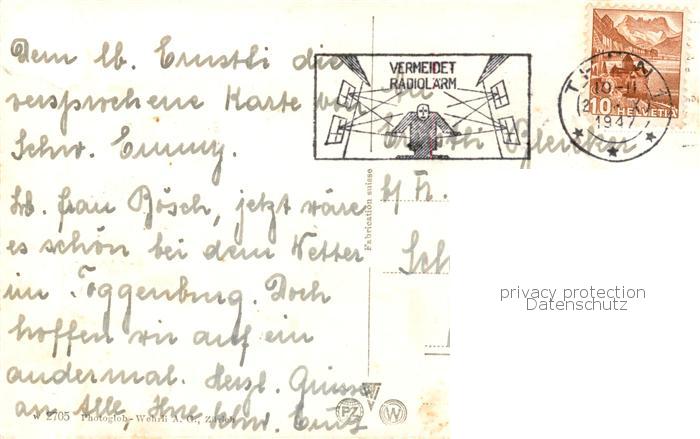 Dem lb. Ernstli die
versprochene Karte von
Schw. Emmy.
Lb. Frau Bösch, jetzt wäre
es schön bei dem Wetter
im Toggenburg. Doch
hoffen wir auf ein
andermal. Herzl. Grüsse
an Alle, Ihre Schw.
W 2705 Photoglob-Wehrli A. G., Zürich
Fabrication suisse
PZ W
VERMEIDET
RADIOLÄRM
THUN 1
1947
10 HELVETIA
Ernstli
b/ Fr.
Sch
privacy protection
Datenschutz